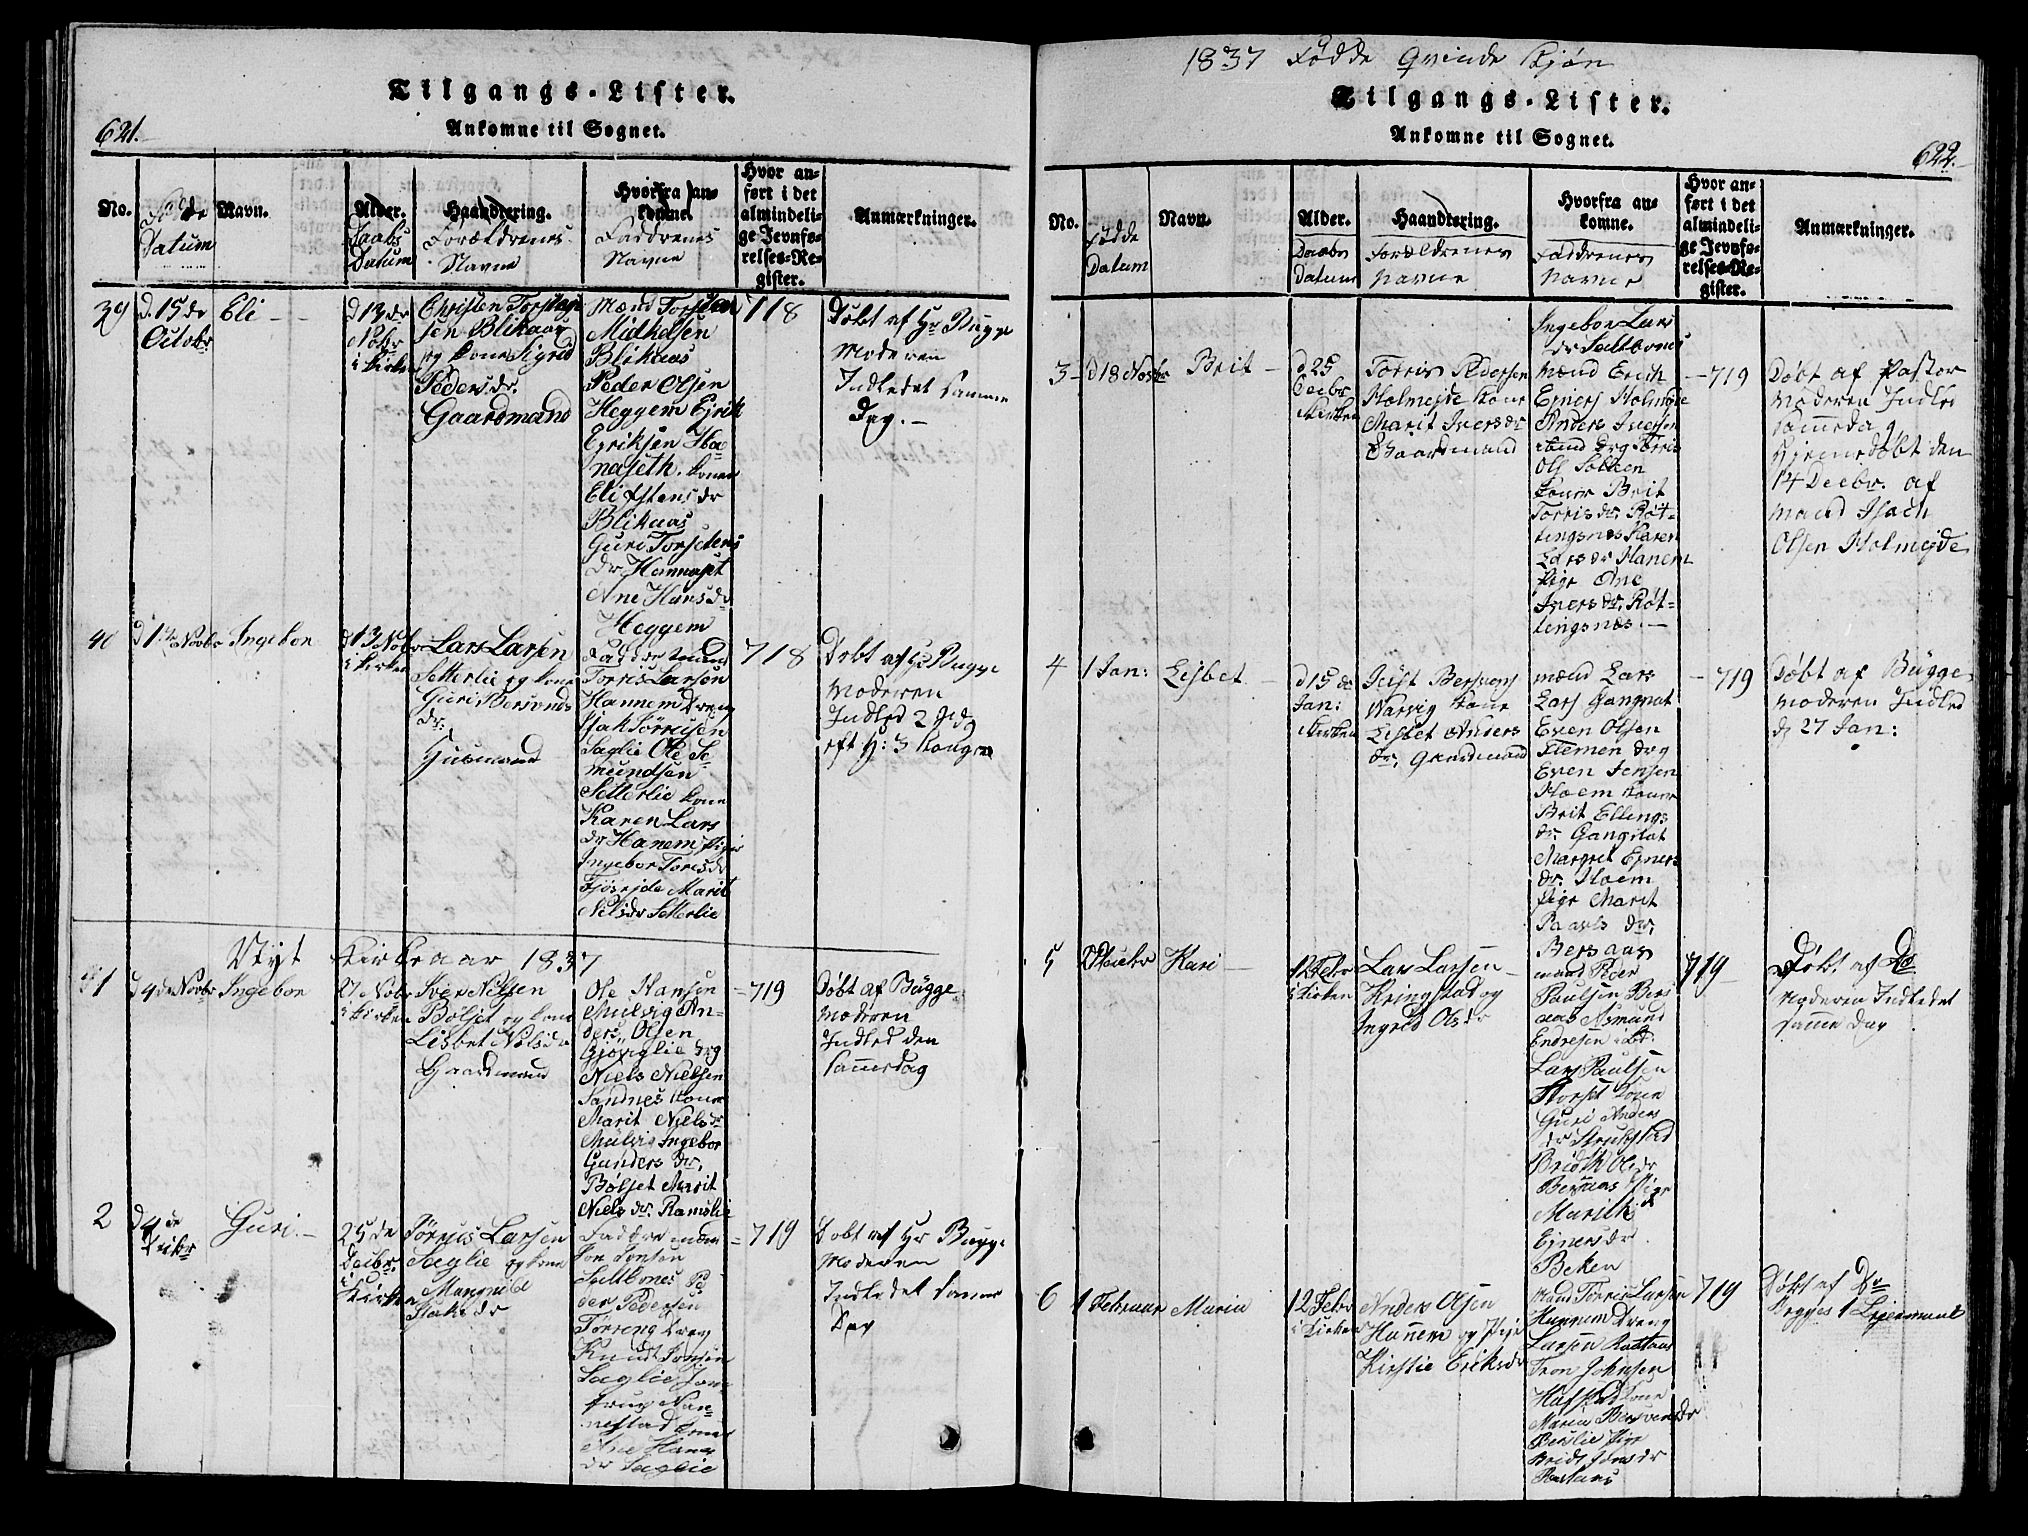 Tilgangs-Lister.
621.
Ankomne til Sognet.
No.
Fødde
Datum
Navn.
Alder.
Daabs
Datum
Haandtering.
Forældrenes
Navne
Hvorfra an-
komne.
Faddrenes
Navne
Hvor an-
ført i det
almindeli-
ge Jevnfø-
relses-Re-
gister.
Anmærkninger.
39
d. 15 de
Octobr
Eli
d 13 de
Nobr
i Kirken
Christen Torsten
sen Blikaas
og kone Sigrid
Pedersdr.
Gaardmand
Mænd Torsten
Blikaas
Peder Olsen
Heggem Ejrik
Ejriksen Ha-
naseth. koner
Eli Estens dr
Blikaas
Guri Torstens
dr Hannaset
Ane Hans dr
Heggem
718
Døbt af Hr Bugge
Moderen
Indledet samme
Dag.
40
Ingebor
d 13 Nobr
i Kirken
Lars Larsen
Setterlie og kone
Guri Bersvends
dr.
Huusmand
Faddre mænd
Torris Larsen
Hannem Dreng
Saglie Ole Se-
mundsen
Setterlie kone
Karen Lars
dr Hanem Piger
Ingebor Toresdr
Marit
Nilsdr Setterlie
718
Døbt af Hr Bugge
Moderen
Nyt Kirkeaar 1837
1
d 4 de Novbr
Ingebor
27 Nobr
i Kirken
Iver Nilsen
Bølset og kone
Lisbet Nilsdr
Gaardmand
Ole Hansen
Mulvig An-
ders Olsen
Gjøviglie drg
Niels Nielsen
Sandnes koner
Marit Niels dr
Mulvig Ingebor
Gunders dr,
Bølset Marit
Niels dr. Ramslie
719
Døbt af Bugge
Moderen
Indled den
sammedag
2
d 4 de
Guri.
25 de
Decbr.
i
Kirken
Larsen
Saglie og kone
Isaks dr
Faddre mænd
Jon Jonsen
Saltbones Pe-
der Pedersen
Tørreng Dreng
Knudt Jonsen
Saglie
Ane Hans
dr Saglie
719
Døbt af Hr Bugge
Moderen
Indledet samme
Dag
1837 Fødde Qvinde Kjøn
Tilgangs-Lister.
Ankomne til Sognet.
622.
No.
Fødde
Datum
Navn.
Alder.
Daabs
Datum
Haandtering.
Forældrenes
Navne
Hvorfra an-
komne.
Faddrenes
Navne
Hvor an-
ført i det
almindeli-
ge Jevnfø-
relses-Re-
gister.
Anmærkninger.
3
d 18 Novbr
Brit
d 25
Decbr
Kirken
Torris Pedersen
Holmejde kone
Marit Ivers dr
Gaardmand
Ingebor Lars
dr Saltbones
mænd Erich
Ejners Holmejde
Anders Iversen
Ole Solleen
koner Brit
Torris dr, Røt-
tingsnes Karen
Lars dr Hanem
Pige Ane
Ivers dr, Røt-
tingsnæs.
719
Døbt af Pastor
Moderen Indled
samedag
Hjemedøbt den
14 Decbr. af
mand Isach
Olsen Holmejde
4
1 Jan:
Lisbet
d 15 de
Jan:
Kirken
Warvig kone
Lisbet Anders
dr, Gaardmand
mænd Lars
Lars Gangnat
Even Olsen
Stemen drg
Even Jensen
Hoem koner
Brit Ellings
dr Gangstat
Margret Ejners
dr. Hoem
Pige Marit
Paavls dr,
Bersaas
719
Døbt af Bugge
Moderen Indled
d 27 Jan:
5
Kari
12 Febr
i Kirken
Lars Larsen
Kringstad og
Ingrid Olsdr
mænd Peer
Paulsen Bers
aas Asmund
Endresen
Lars Paulsen
Storset kone
Guri Anders
dr
Bridth Olsdr
Bersaas Pige
Marith
Ejnersdr.
Beken
719
Døbt af Do
Moderen Indledet
samme Dag
6
1 Februar
Maria
12 Febr
i Kirken
Anders Olsen
Hanem og Pige
Kirstie Eriksdr
mænd Torris Larsen
Hannem Dreng
Larsen
Tron Johnsen
kone
Maria
Pige
719
Døbt af Do
Begges 1 Lejermaal